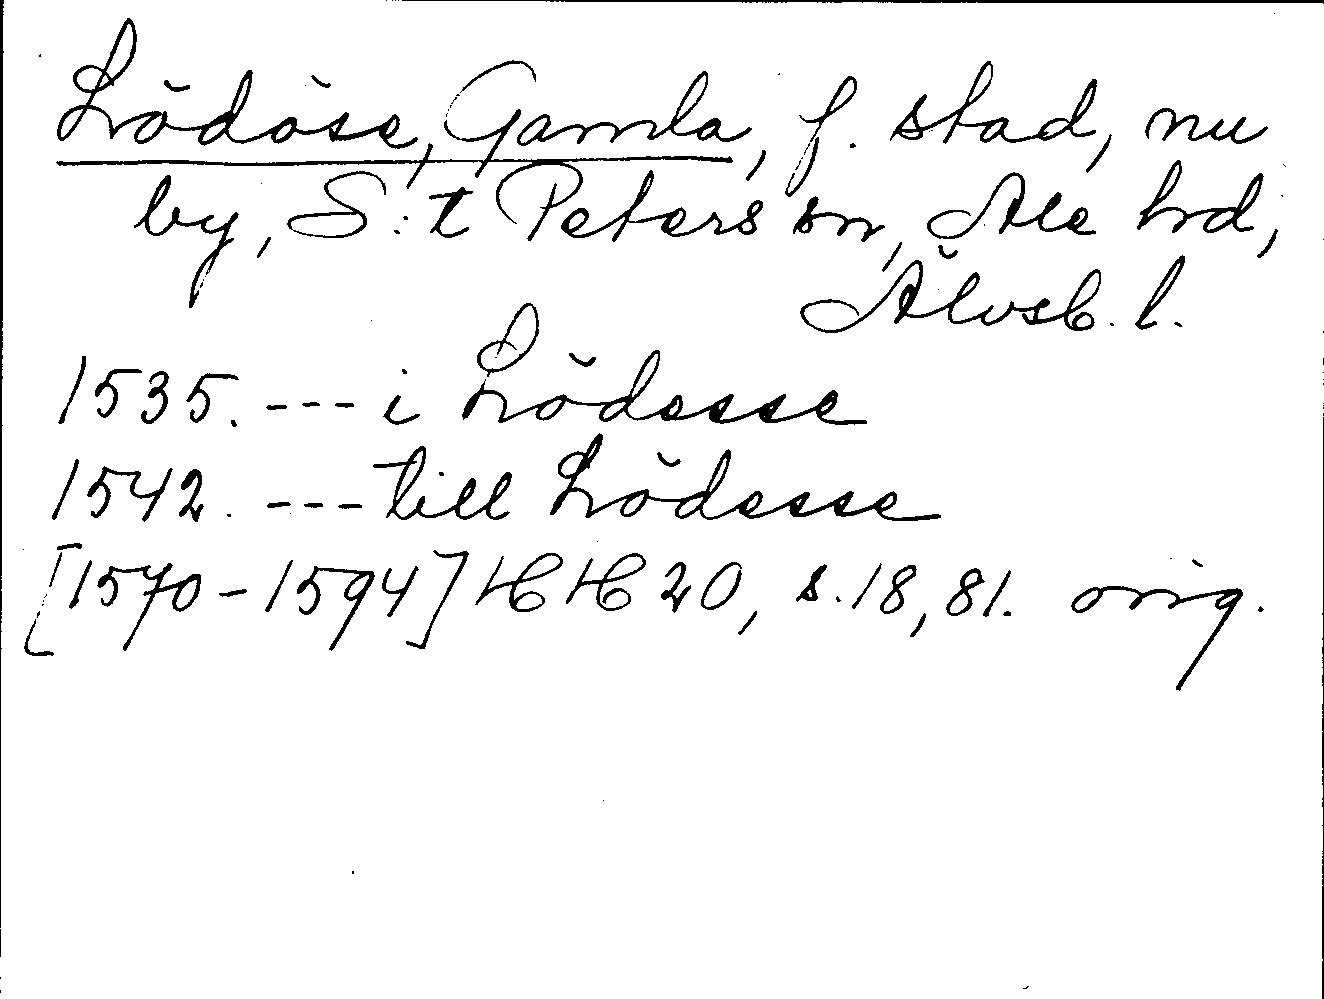 Lödöse, Gamla, f. stad, nu
by, S:t Peters sn, Ale hd,
Älvsb. l.
1535. --- i Lödesse
1542. --- till Lödesse
[1570-1594] HH 20, s. 18, 81. orig.